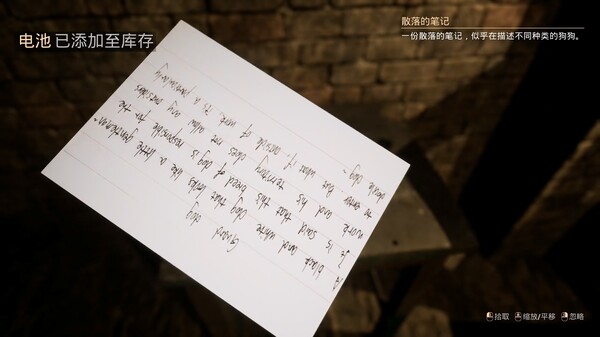 电池 已添加至库存
散落的笔记
一份散落的笔记，似乎在描述不同种类的狗狗。
Guard dog
A black and white dog that looks like a little gentleman.
It is said that this breed of dog is responsible for the
work and his territory does not allow any outsiders
to enter. But what if outside of work, its a particularly
docile dog.
拾取 缩放/平移 忽略